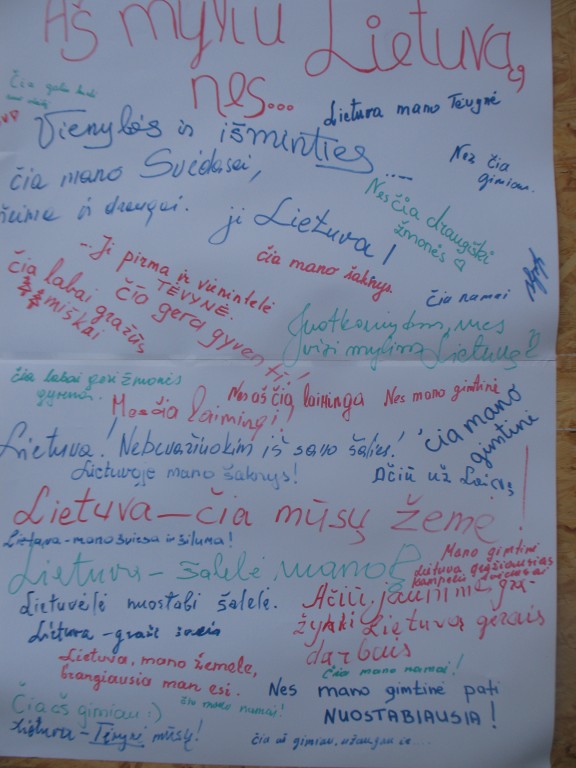 Aš myliu Lietuvą,
nes...
Čia gera
Lietuva mano Tėvynė
Vienybės ir išminties....
Nes čia
gimiau.
čia mano Svėdasai,
šeima ir draugai.
Nes čia draugiški
žmonės
ji Lietuva!
...Ji pirma ir vienintelė
TĖVYNĖ.
čia mano šaknys
čia namai
čia labai gražūs
miškai
čia gera gyventi!
mes
visi mylim Lietuvą!
čia labai geri žmonės
gyvena.
Mes čia laimingi!
Nes aš čia laiminga
Nes mano gimtinė
čia mano
gimtinė
Lietuva! Nebevažiuokim iš savo šalies!
Lietuvoje mano šaknys!
Ačiū už Laisvę
Lietuva – čia mūsų žemė!
Lietuva - mano šviesa ir šiluma!
Mano gimtinė
Lietuva gražiausias
kampelis
Lietuva – šalele mano
Lietuvėlė nuostabi šalelė.
Ačiū jaunimui, gra-
žinki Lietuvą gerais
darbais
Lietuva - graži šalis
Lietuva, mano žemele,
brangiausia man esi.
čia mano namai!
Nes mano gimtinė pati
NUOSTABIAUSIA!
Čia aš gimiau :)
čia mano namai!
Lietuva - Tėvynė mūsų!
čia aš gimiau, užaugau ir...